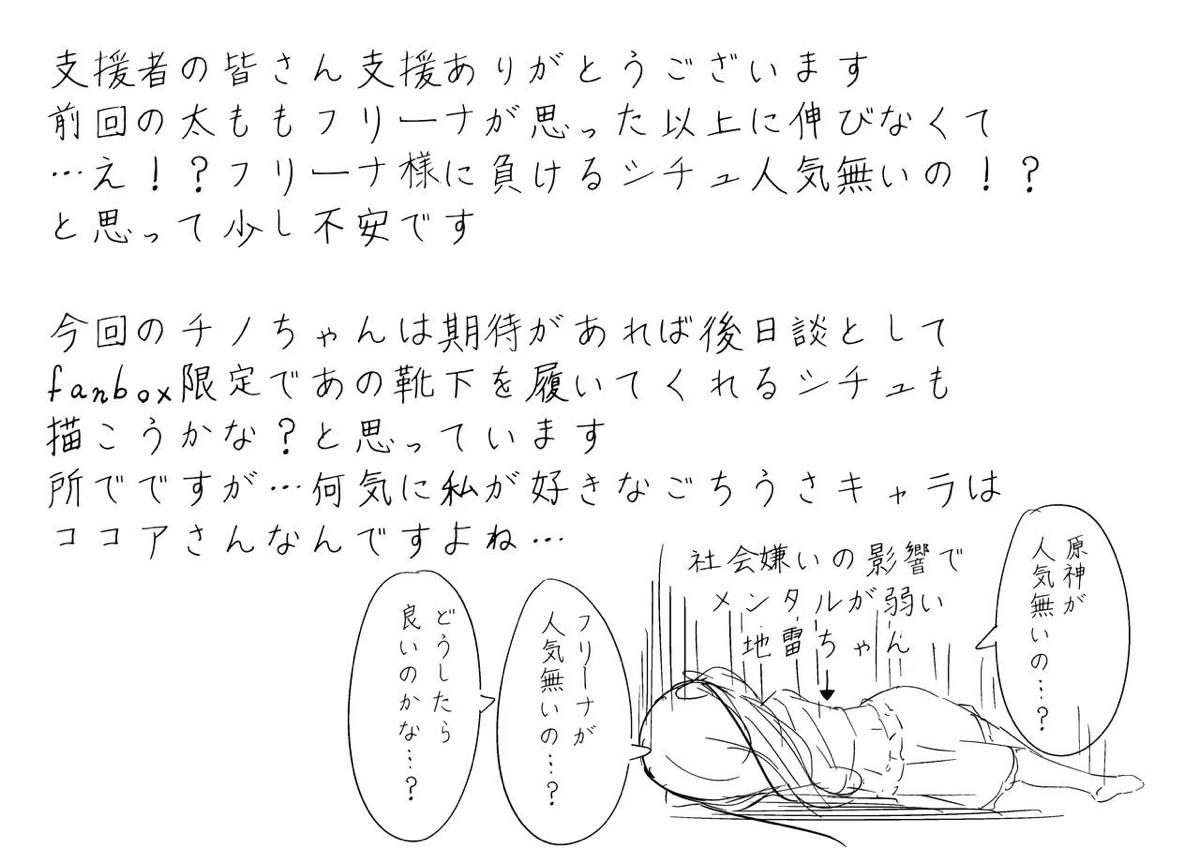 支援者の皆さん支援ありがとうございます
前回の太ももフリーナが思った以上に伸びなくて
…え！？フリーナ様に負けるシチュ人気無いの！？
と思って少し不安です
今回のチノちゃんは期待があれば後日談として
fanbox限定であの靴下を履いてくれるシチュも
描こうかな？と思っています
所でですが…何気に私が好きなごちうさキャラは
ココアさんなんですよね…
社会嫌いの影響で
メンタルが弱い
地雷ちゃん
原神が
人気無いの…？
フリーナが
人気無いの…？
どうしたら
良いのかな…？